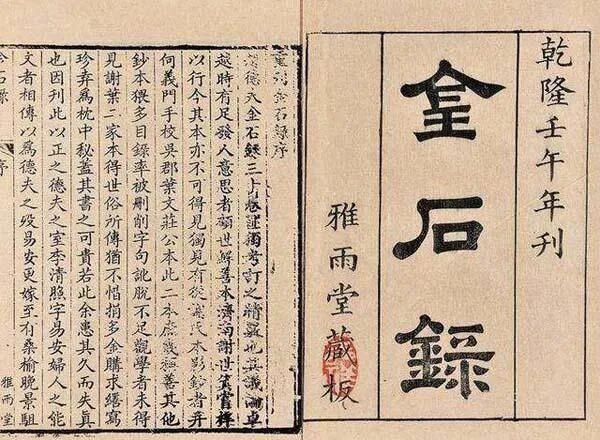 乾隆壬午年刊
金石錄
雅雨堂藏板
重刊金石錄序
趙德父金石錄三十卷獨考訂之精覈也其議論卓
越時有足發人意思者顧世鮮善本濟南謝世箕嘗梓
以行今其本亦不可得見獨見有從謝氏本影鈔者并
何義門手校吳郡葉文莊公本此二本庶幾稱善其他
鈔本猥多目錄率被刪削字句訛脫不足觀學者未得
見謝葉二家本得世俗所傳猶不惜捐多金購求繕寫
珍弆為枕中秘蓋其書之可貴若此余患其久而失真
也因刊此以正之德夫之室李清照字易安婦人之能
文者相傳以為德夫之歿易安更嫁至有桑榆晚景駔
金石錄 序 雅雨堂